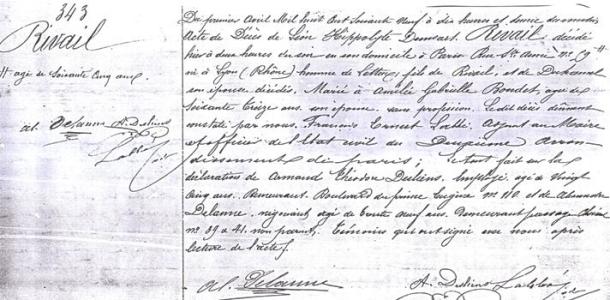 343
Rivail
# agé de Soixante cinq ans.
al. Delanne A. Desliens
Du premier Avril Mil huit Cent Soixante neuf à dix heures et demie du matin
Acte de Décès de Léon Hippolyte Denisart Rivail décédé
hier à deux heures du soir en son domicile à Paris Rue Ste Anne nº 59 #
né à Lyon (Rhône) homme de Lettres, fils de Rivail, et de Duhamel
son épouse décédés, Marié à Amélie Gabrielle Boudet, agée de
Soixante treize ans, son épouse, sans profession. Ledit décès dûment
constaté par nous, François Ernest Adjoint au Maire
et officier de l'Etat civil du Deuxième arron-
dissement de paris; et fait sur la
déclaration de Armand Théodore Desliens, Employé, agé de Vingt
Cinq ans, Demeurant Boulevard du prince Eugène nº 110 et de Alexandre
Delanne, négociant agé de trente neuf ans, Demeurant passage
nº 39 & 41, non parents, Témoins qui ont signé avec nous après
lecture de l'acte.
al. Delanne A. Desliens